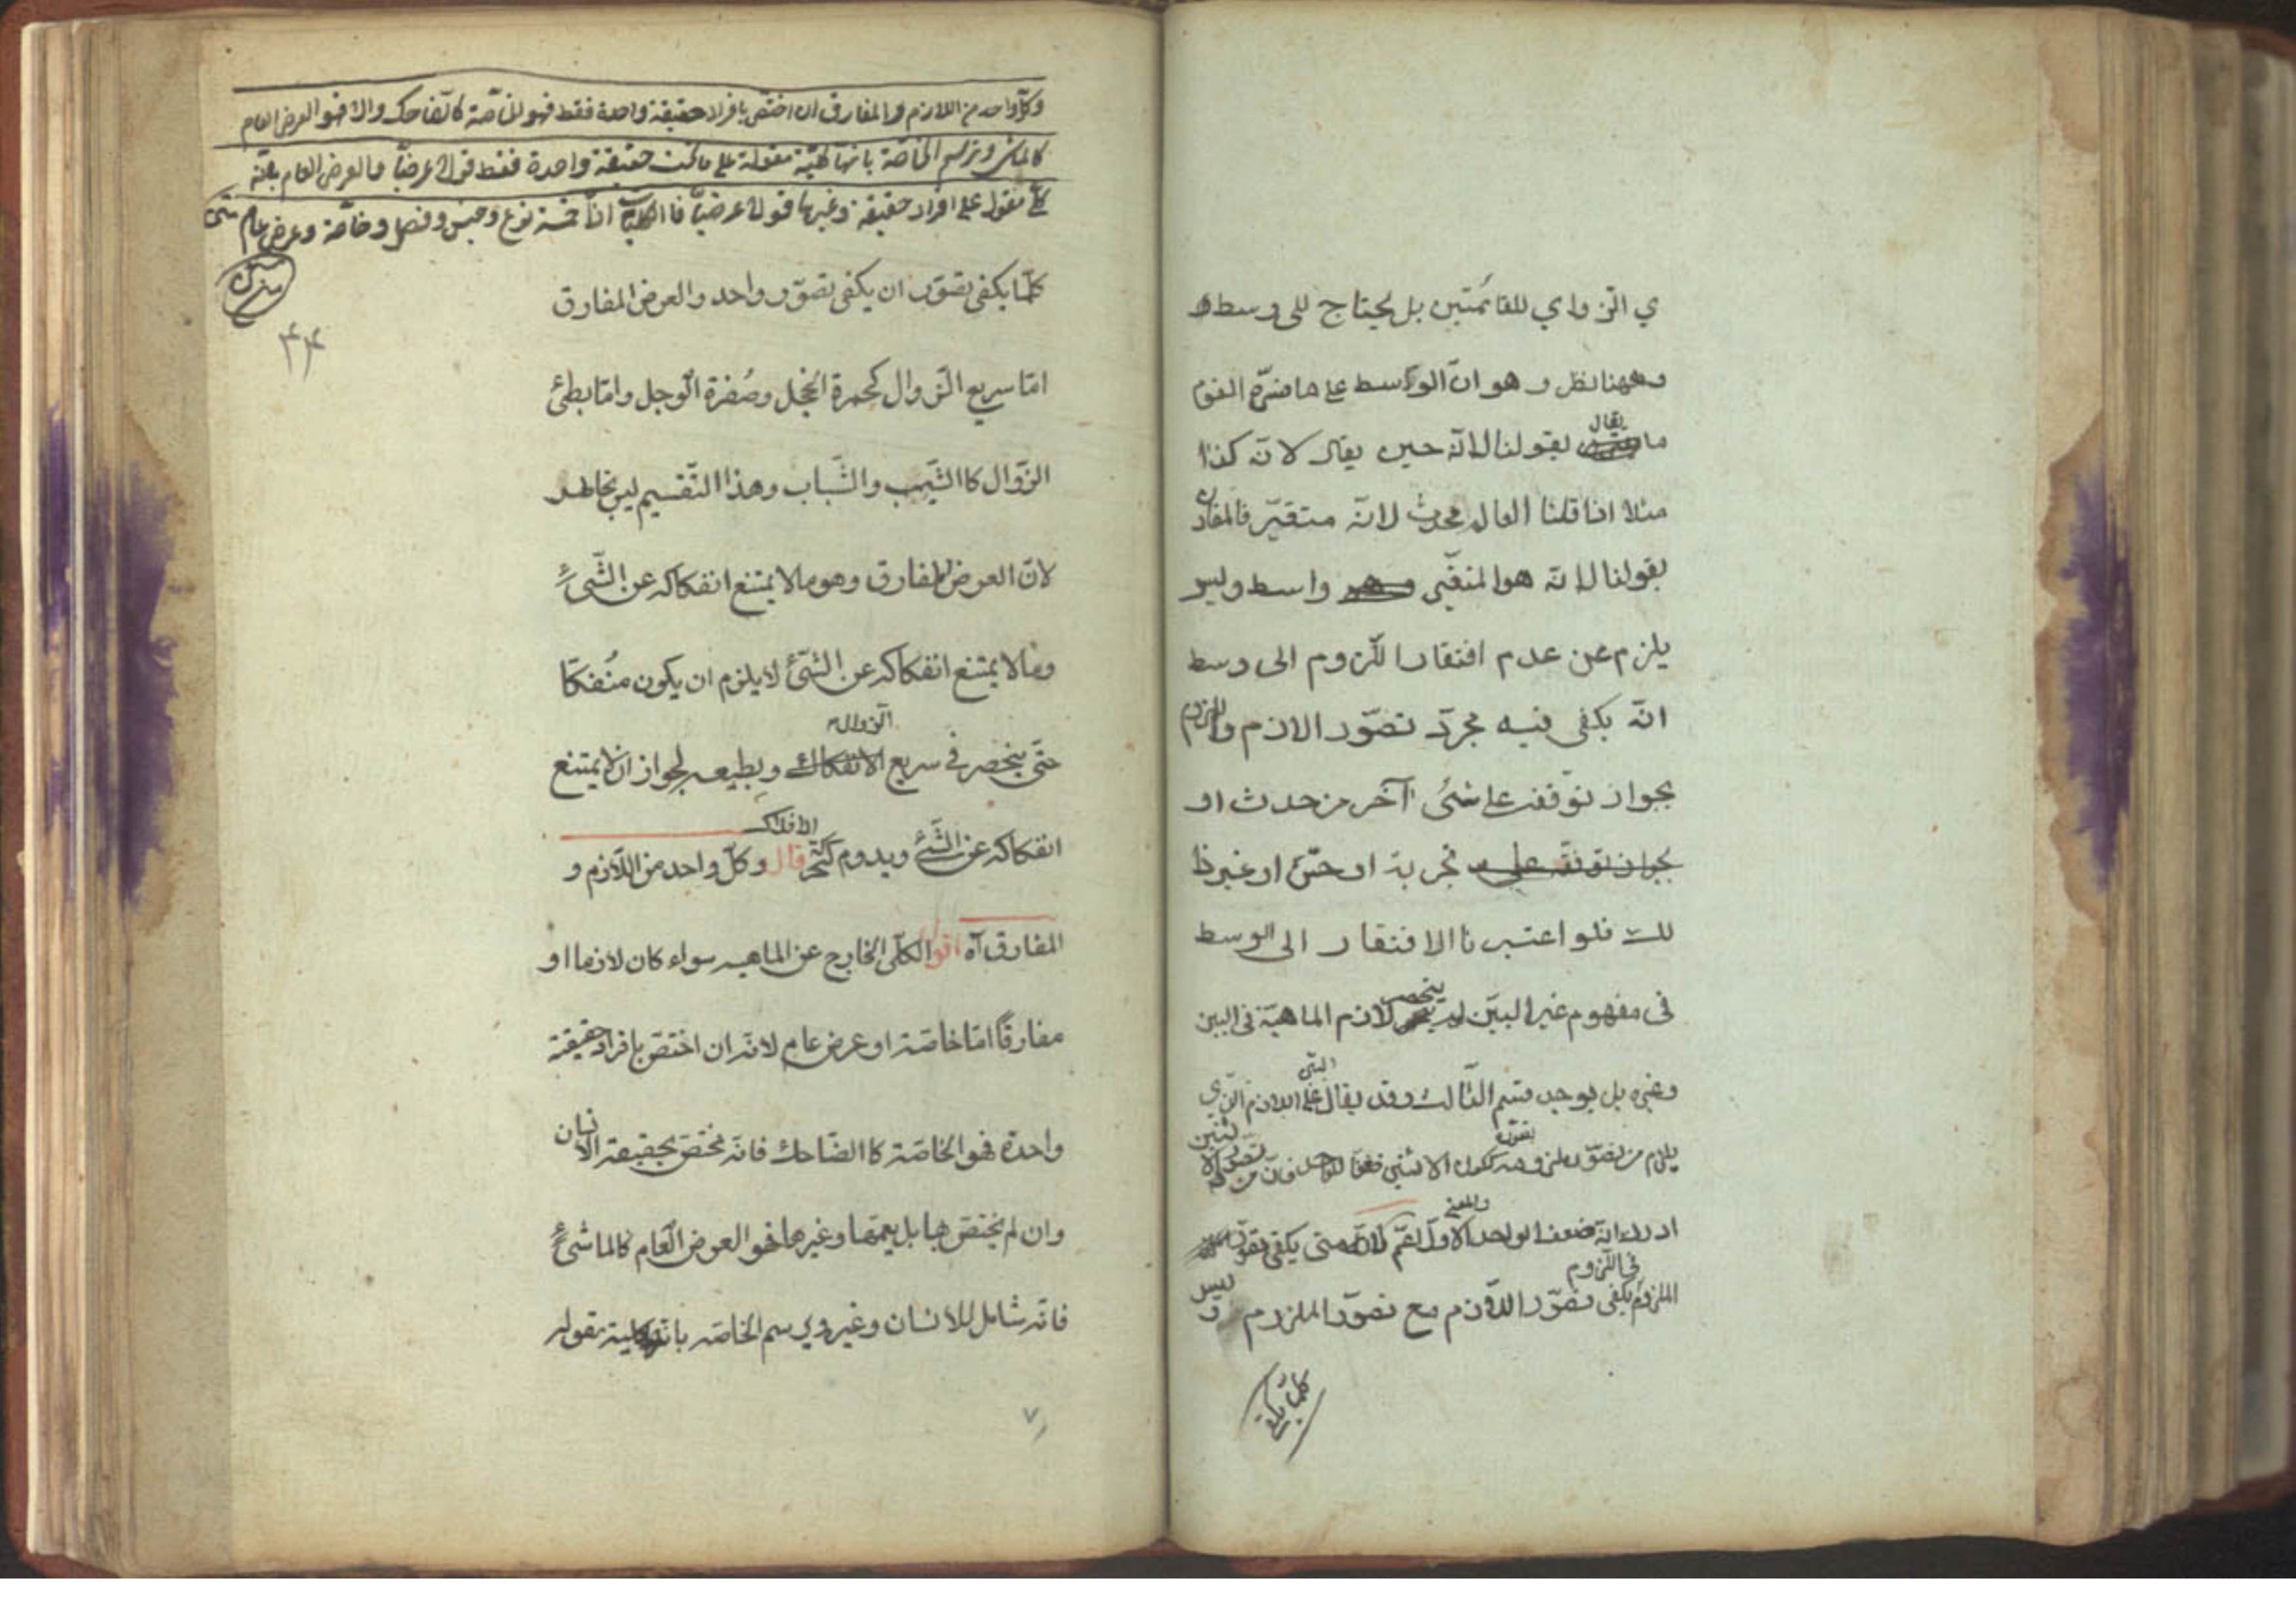 ي الزوايا للقائمتين بل يحتاج الى وسط
وههنا نظر وهو ان الوسط على ما فسّره القوم
ما يقال بقولنا لانّه حين يقال لانّه كذا
مثلا اذا قلنا العالم محدث لانّه متغيّر فالمقارن
بقولنا لانّه هو المتغيّر واسط وليس
يلزم من عدم افتقار اللزوم الى وسط
انّه يكفى فيه مجرّد تصوّر الازم والملزوم
بجواز توقفه على شئ آخر من حدث او
بجواز توقفه على تجربة او حسّ او غير ذا
لك فلو اعتبرنا الافتقار الى الوسط
فى مفهوم غير البيّن لم ينحصر لازم الماهيّة فى البين
وغيره بل يوجد قسم الثالث وقد يقال البيّن على اللازم الذي
يلزم من تصوّر ملزومه ككون الاثنين ضعفا للواحد فان من تصوّر الاثنين
ادرك انّه ضعف الواحد والمعنى الاول اعمّ لانّه متى يكفى تصوّر
الملزوم فى اللزوم يكفى تصوّر اللازم مع تصوّر الملزوم وليس
كلما يكفى
وكل واحد من اللازم والمفارق ان اختصّ بافراد حقيقة واحدة فقط فهو الخاصّة كالضاحك والا فهو العرض العام
كالماشى وترسم الخاصّة بانها كليّة مقولة على ما تحت حقيقة واحدة فقط قولا عرضيّا والعرض العام بانّه
كلّى مقول على افراد حقيقة وغيرها قولا عرضيّا فالكليّات اذًا خمسة نوع وجنس وفصل وخاصّة وعرض عام متن
٣٤
كلّما يكفى تصوّر ان يكفى تصوّر واحد والعرض المفارق
امّا سريع الزوال كحمرة الخجل وصُفرة الوجل وامّا بطئ
الزّوال كالشّيب والشّباب وهذا التّقسيم ليس بحاصر
لانّ العرض المفارق وهو ما لا يمتنع انفكاكه عن الشّئ
وما لا يمتنع انفكاكه عن الشّئ لا يلزم ان يكون مُنفكّا
حتّى ينحصر فى سريع الانفكاك الزوال وبطيئه لجواز ان لا يمتنع
انفكاكه عن الشّئ ويدوم كحركة الافلاك قال وكلّ واحد من اللّازم و
المفارق آه اقول الكلّى الخارج عن الماهيه سواء كان لازما او
مفارقًا امّا خاصّة او عرض عام لانّه ان اختصّ بافراد حقيقة
واحدة فهو الخاصّة كالضّاحك فانّه مختصّ بحقيقة الانسان
وان لم يختصّ بها بل يعمّها وغيرها فهو العرض العام كالماشئ
فانّه شامل للانسان وغيره ويرسم الخاصّه بانّها كلية مقوله
٧